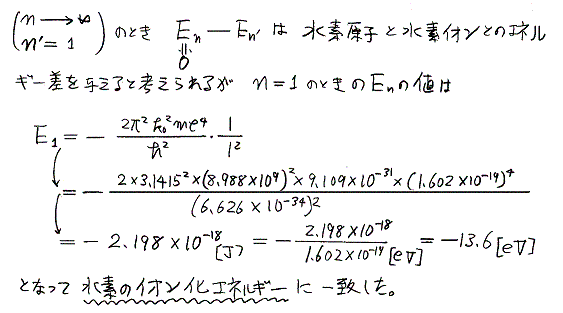 (n→∞ n'=1) のとき E_n − E_n' は 水素原子と水素イオンとのエネル
‖
0
ギー差を与えると考えられるが n=1 のときの E_n の値は
E_1 = − 2π²k_0²me⁴/h² · 1/1²
= − 2×3.1415²×(8.988×10⁹)²×9.109×10⁻³¹×(1.602×10⁻¹⁹)⁴/(6.626×10⁻³⁴)²
= − 2.198×10⁻¹⁸[J] = − 2.198×10⁻¹⁸/1.602×10⁻¹⁹ [eV] = −13.6[eV]
となって 水素のイオン化エネルギーに一致した。